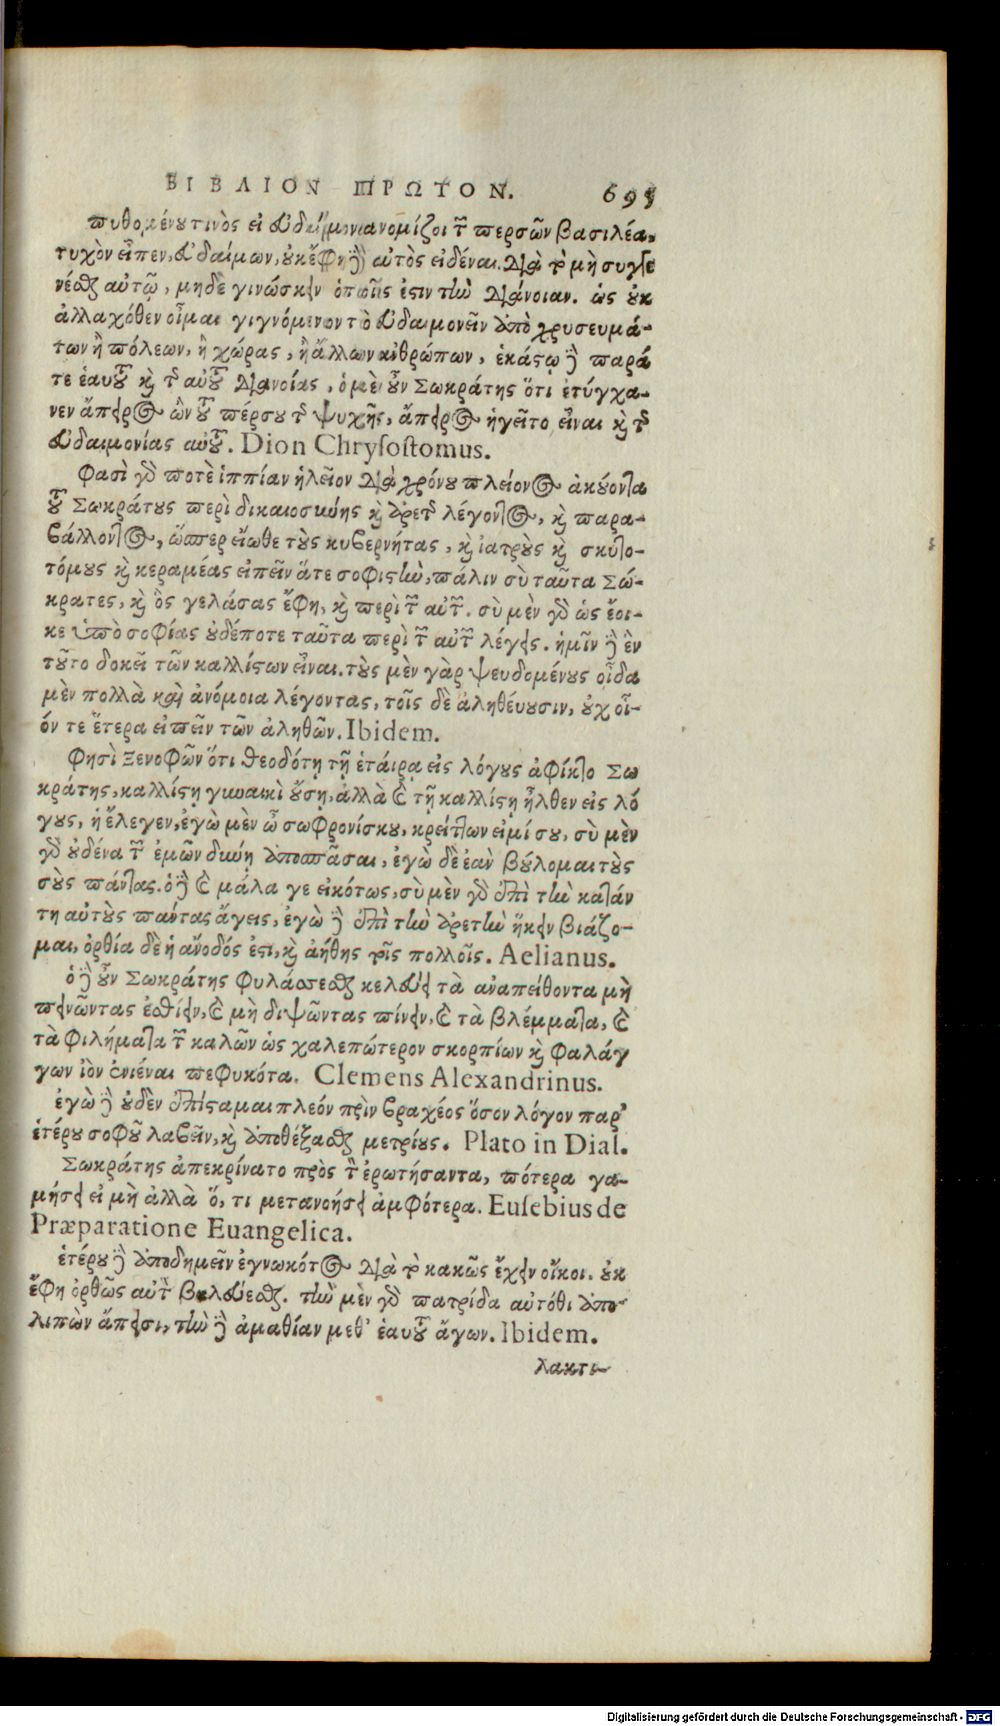 ΒΙΒΛΙΟΝ ΠΡΩΤΟΝ. 695
πυθομένου τινὸς εἰ εὐδαίμονα νομίζοι τὸν περσῶν βασιλέα,
τυχὸν εἶπεν, εὐδαίμων, οὐκ ἔφη δὲ αὐτὸς εἰδέναι. διὰ τὸ μὴ συγγε
νέσθαι αὐτῷ, μηδὲ γινώσκειν ὁποῖός ἐστιν τὴν διάνοιαν. ὡς οὐκ
ἀλλαχόθεν οἶμαι γιγνόμενον τὸ εὐδαιμονεῖν ἀπὸ χρυσευμά-
των ἢ πόλεων, ἢ χώρας, ἢ ἄλλων ἀνθρώπων, ἑκάστῳ δὲ παρά
τε ἑαυτοῦ καὶ τῆς αὐτοῦ διανοίας, ὁ μὲν οὖν Σωκράτης ὅτι ἐτύγχα-
νεν ἄπειρος ὢν τοῦ πέρσου τῆς ψυχῆς, ἄπειρος ἡγεῖτο εἶναι καὶ τῆς
εὐδαιμονίας αὐτοῦ. Dion Chrysostomus.
Φασὶ γὰρ ποτὲ ἱππίαν ἠλεῖον διὰ χρόνου πλείονος ἀκούοντα
τοῦ Σωκράτους περὶ δικαιοσύνης καὶ ἀρετῆς λέγοντος, καὶ παρα-
βάλλοντος, ὥσπερ εἴωθε τοὺς κυβερνήτας, καὶ ἰατροὺς καὶ σκυτο-
τόμους καὶ κεραμέας εἰπεῖν ἅτε σοφιστὴν, πάλιν σὺ ταῦτα Σώ-
κρατες, καὶ ὃς γελάσας ἔφη, καὶ περὶ τῶν αὐτῶν. σὺ μὲν γὰρ ὡς ἔοι-
κε ὑπὸ σοφίας οὐδέποτε ταῦτα περὶ τῶν αὐτῶν λέγεις. ἡμῖν δὲ ἓν
τοῦτο δοκεῖ τῶν καλλίστων εἶναι. τοὺς μὲν γὰρ ψευδομένους οἶδα
μὲν πολλὰ καὶ ἀνόμοια λέγοντας, τοῖς δὲ ἀληθεύουσιν, οὐχ οἷ-
όν τε ἕτερα εἰπεῖν τῶν ἀληθῶν. Ibidem.
Φησὶ Ξενοφῶν ὅτι θεοδότῃ τῇ ἑταίρᾳ εἰς λόγους ἀφίκετο Σω
κράτης, καλλίστῃ γυναικὶ οὔσῃ, ἀλλὰ καὶ τῇ καλλίστῃ ἦλθεν εἰς λό
γους, ἡ ἔλεγεν, ἐγὼ μὲν ὦ σωφρονίσκου, κρείττων εἰμί σου, σὺ μὲν
γὰρ οὐδένα τῶν ἐμῶν δύνῃ ἀποσπᾶσαι, ἐγὼ δὲ ἐὰν βούλομαι τοὺς
σοὺς πάντας. ὁ δὲ καὶ μάλα γε εἰκότως, σὺ μὲν γὰρ ἐπὶ τὴν κατάν
τη αὐτοὺς πάντας ἄγεις, ἐγὼ δὲ ἐπὶ τὴν ἀρετὴν ἥκειν βιάζο-
μαι, ὀρθία δὲ ἡ ἄνοδός ἐστι, καὶ ἀήθης τοῖς πολλοῖς. Aelianus.
ὁ δὲ οὖν Σωκράτης φυλάσσεσθαι κελεύει τὰ ἀναπείθοντα μὴ
πεινῶντας ἐσθίειν, καὶ μὴ διψῶντας πίνειν, καὶ τὰ βλέμματα, καὶ
τὰ φιλήματα τῶν καλῶν ὡς χαλεπώτερον σκορπίων καὶ φαλάγ
γων ἰὸν ἐνιέναι πεφυκότα. Clemens Alexandrinus.
ἐγὼ δὲ οὐδὲν ἐπίσταμαι πλεόν πλὴν βραχέος ὅσον λόγον παρ’
ἑτέρου σοφοῦ λαβεῖν, καὶ ἀποδέξασθαι μετρίους. Plato in Dial.
Σωκράτης ἀπεκρίνατο πρὸς τὸν ἐρωτήσαντα, πότερα γα-
μήσει εἰ μὴ ἀλλὰ ὅ, τι μετανοήσει ἀμφότερα. Eusebius de
Præparatione Euangelica.
ἑτέρου δὲ ἀποδημεῖν ἐγνωκότος διὰ τὸ κακῶς ἔχειν οἴκοι. οὐκ
ἔφη ὀρθῶς αὐτὸν βουλεύεσθαι. τὴν μὲν γὰρ πατρίδα αὐτόθι ἀπο-
λιπὼν ἄπεισι, τὴν δὲ ἀμαθίαν μεθ’ ἑαυτοῦ ἄγων. Ibidem.
λακτι-
Digitalisierung gefördert durch die Deutsche Forschungsgemeinschaft - DFG